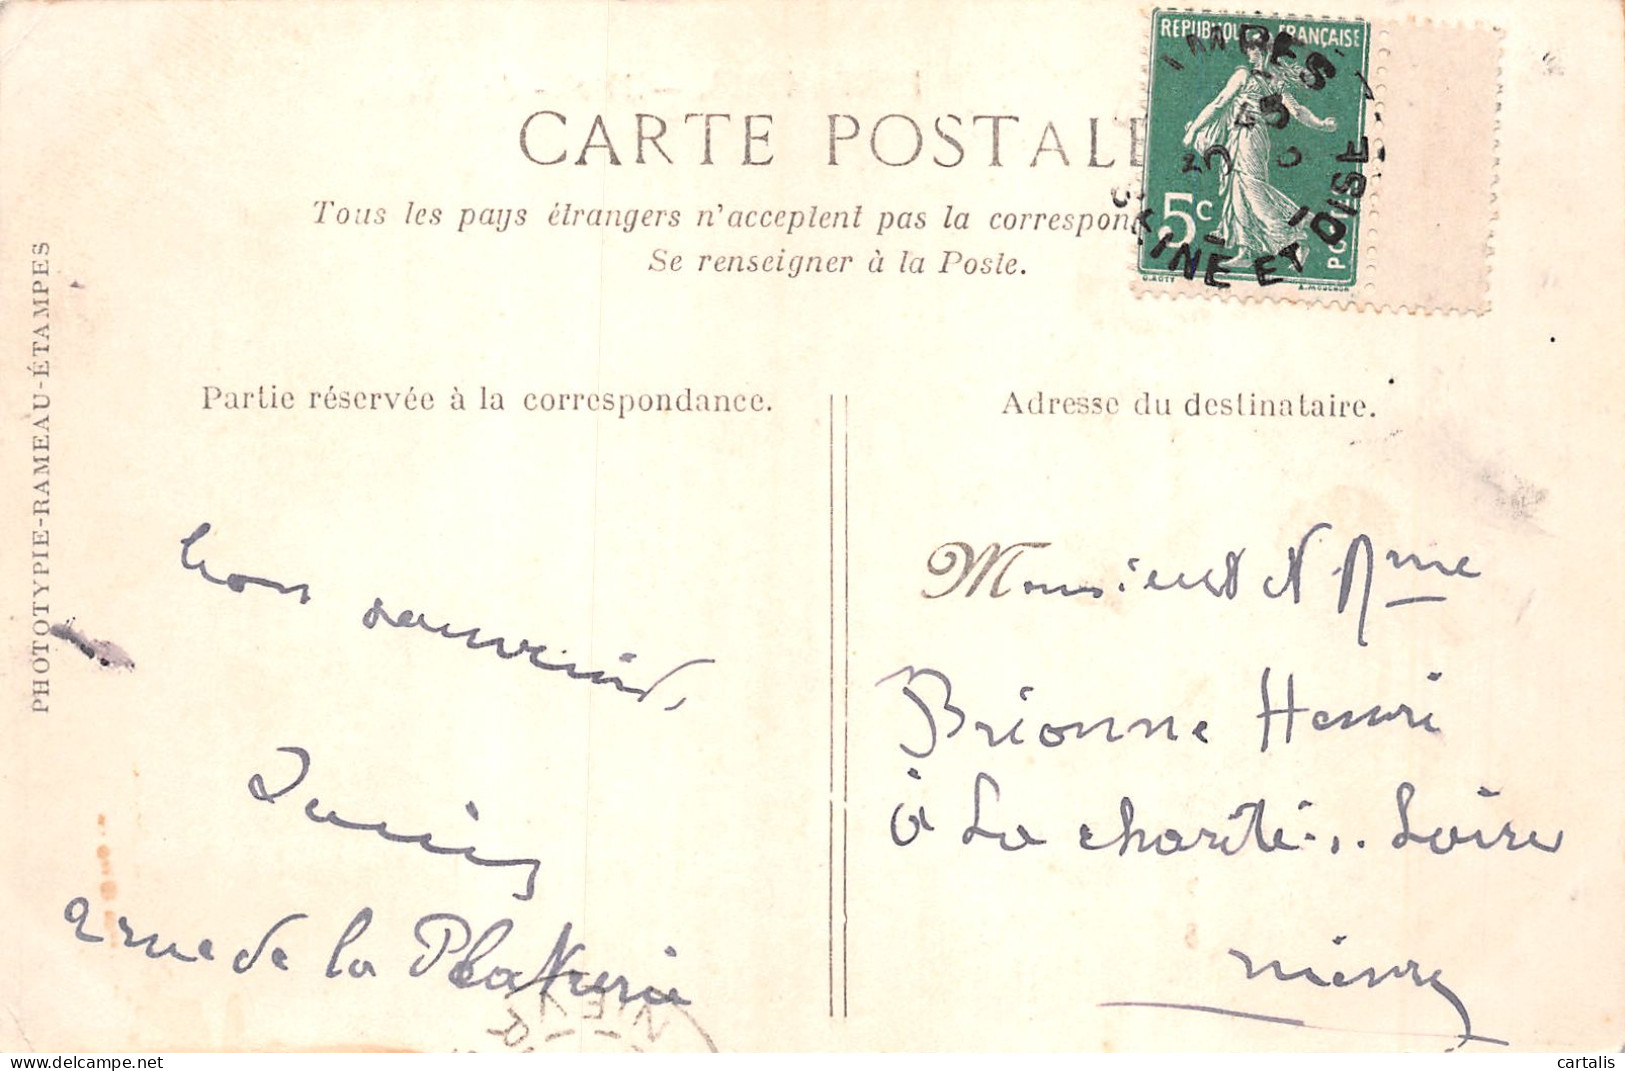 CARTE POSTALE
Tous les pays étrangers n'acceptent pas la correspon
Se renseigner à la Poste.
REPUBLIQUE FRANÇAISE
5c
POSTES
O. ROTY
A. MOUCHON
SEINE ET OISE
PHOTOTYPIE-RAMEAU-ÉTAMPES
Partie réservée à la correspondance.
Adresse du destinataire.
bons souvenirs,
2 rue de la Platrerie
Monsieur et Mme
Brionne Henri
à La charité .. Loire
nièvre
cartalis